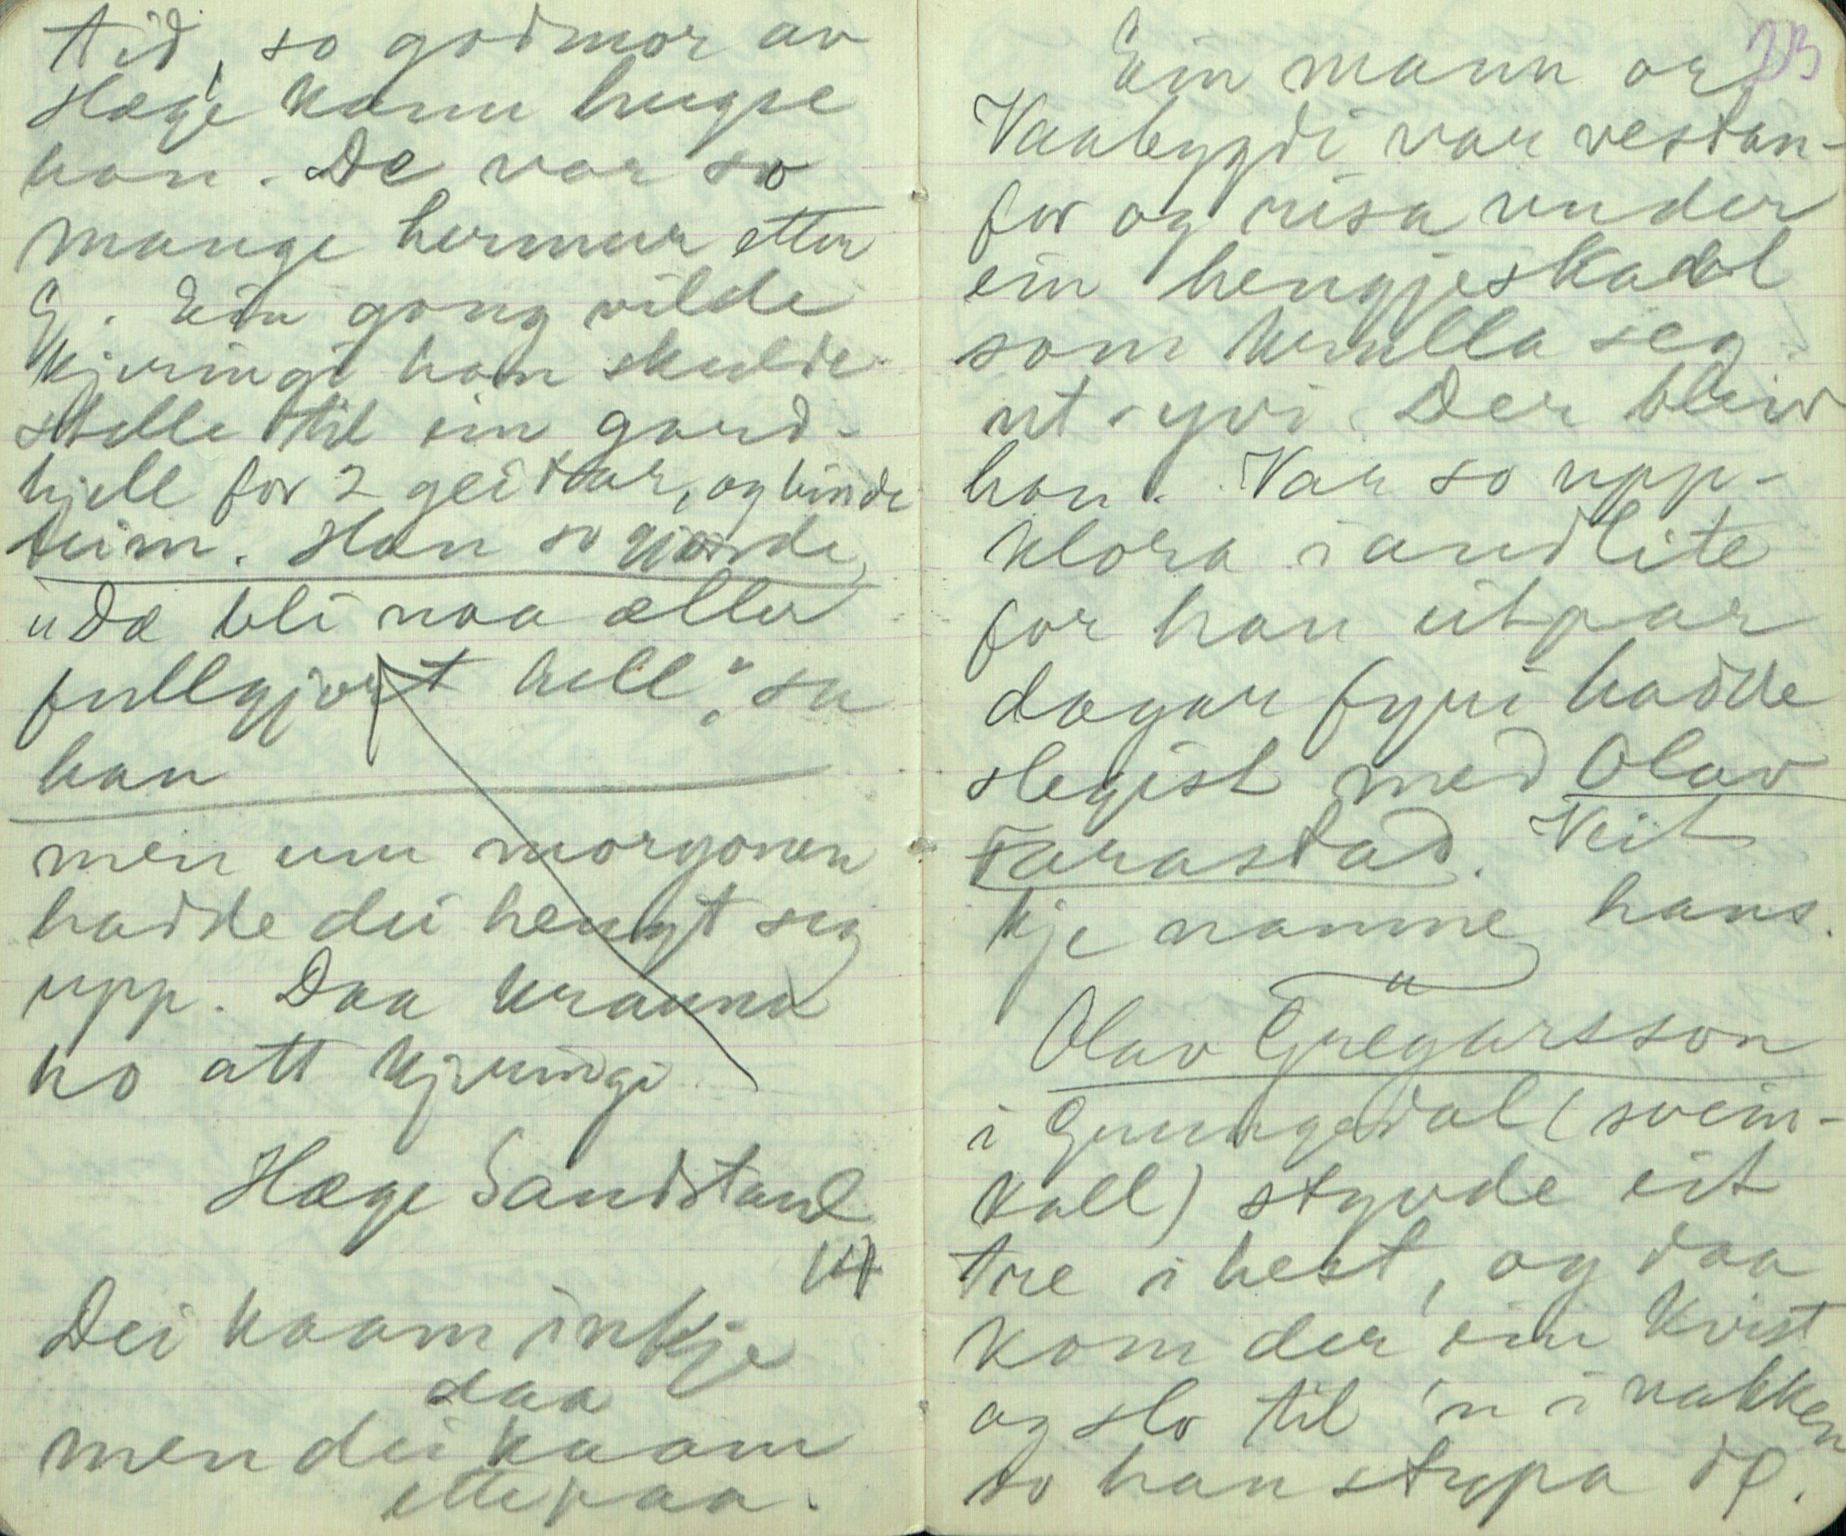 tid, so godmor av
Hæge kann hugse
han. De var so
mange hermur etter
G. Ein gong vilde
kjeringi han skulde
stelle til ein gard-
hjell for 2 geitar, og binde
deim. Han so gjorde,
"Dæ bli naa æller
fullgjort hell", sa
han
men um morgonen
hadde dei hengt seg
upp. Daa
ho att kjeringi
Hæge Sandstand
Dei kaam inkje
daa
men dei kaam
ettepaa.
213
Ein mann or
Vaabygdi var vestan-
for og risa under
ein hengjeskadl
som krulla seg
ut-yvi. Der bleiv
han. Var so upp-
klora i andlite
for han eit par
dagar fyri hadde
slegist med Olav
Tarastad. Veit
kje namne hans.
Olav Gregarsson
i Grungedal (svein-
kall) styvde eit
tre i hest, og daa
kom der ein kvist
og slo til 'n i nakken
so han stypa